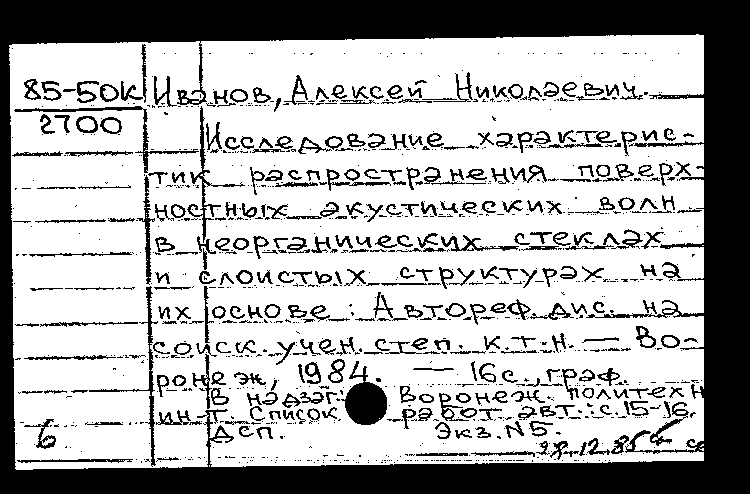 85-50К Иванов, Алексей Николаевич.
2700
Исследование характерис-
тик распространения поверх-
ностных акустических волн
в неорганических стеклах
и слоистых структурах на
их основе: Автореф. дис. на
соиск. учен. степ. к.т.н. — Во-
ронеж, 1984. — 16с., граф.
В надзаг.: Воронеж. политехн
ин-т. Список работ авт.: с.15-16.
Дсп. Экз.№5.
6 28.12.85